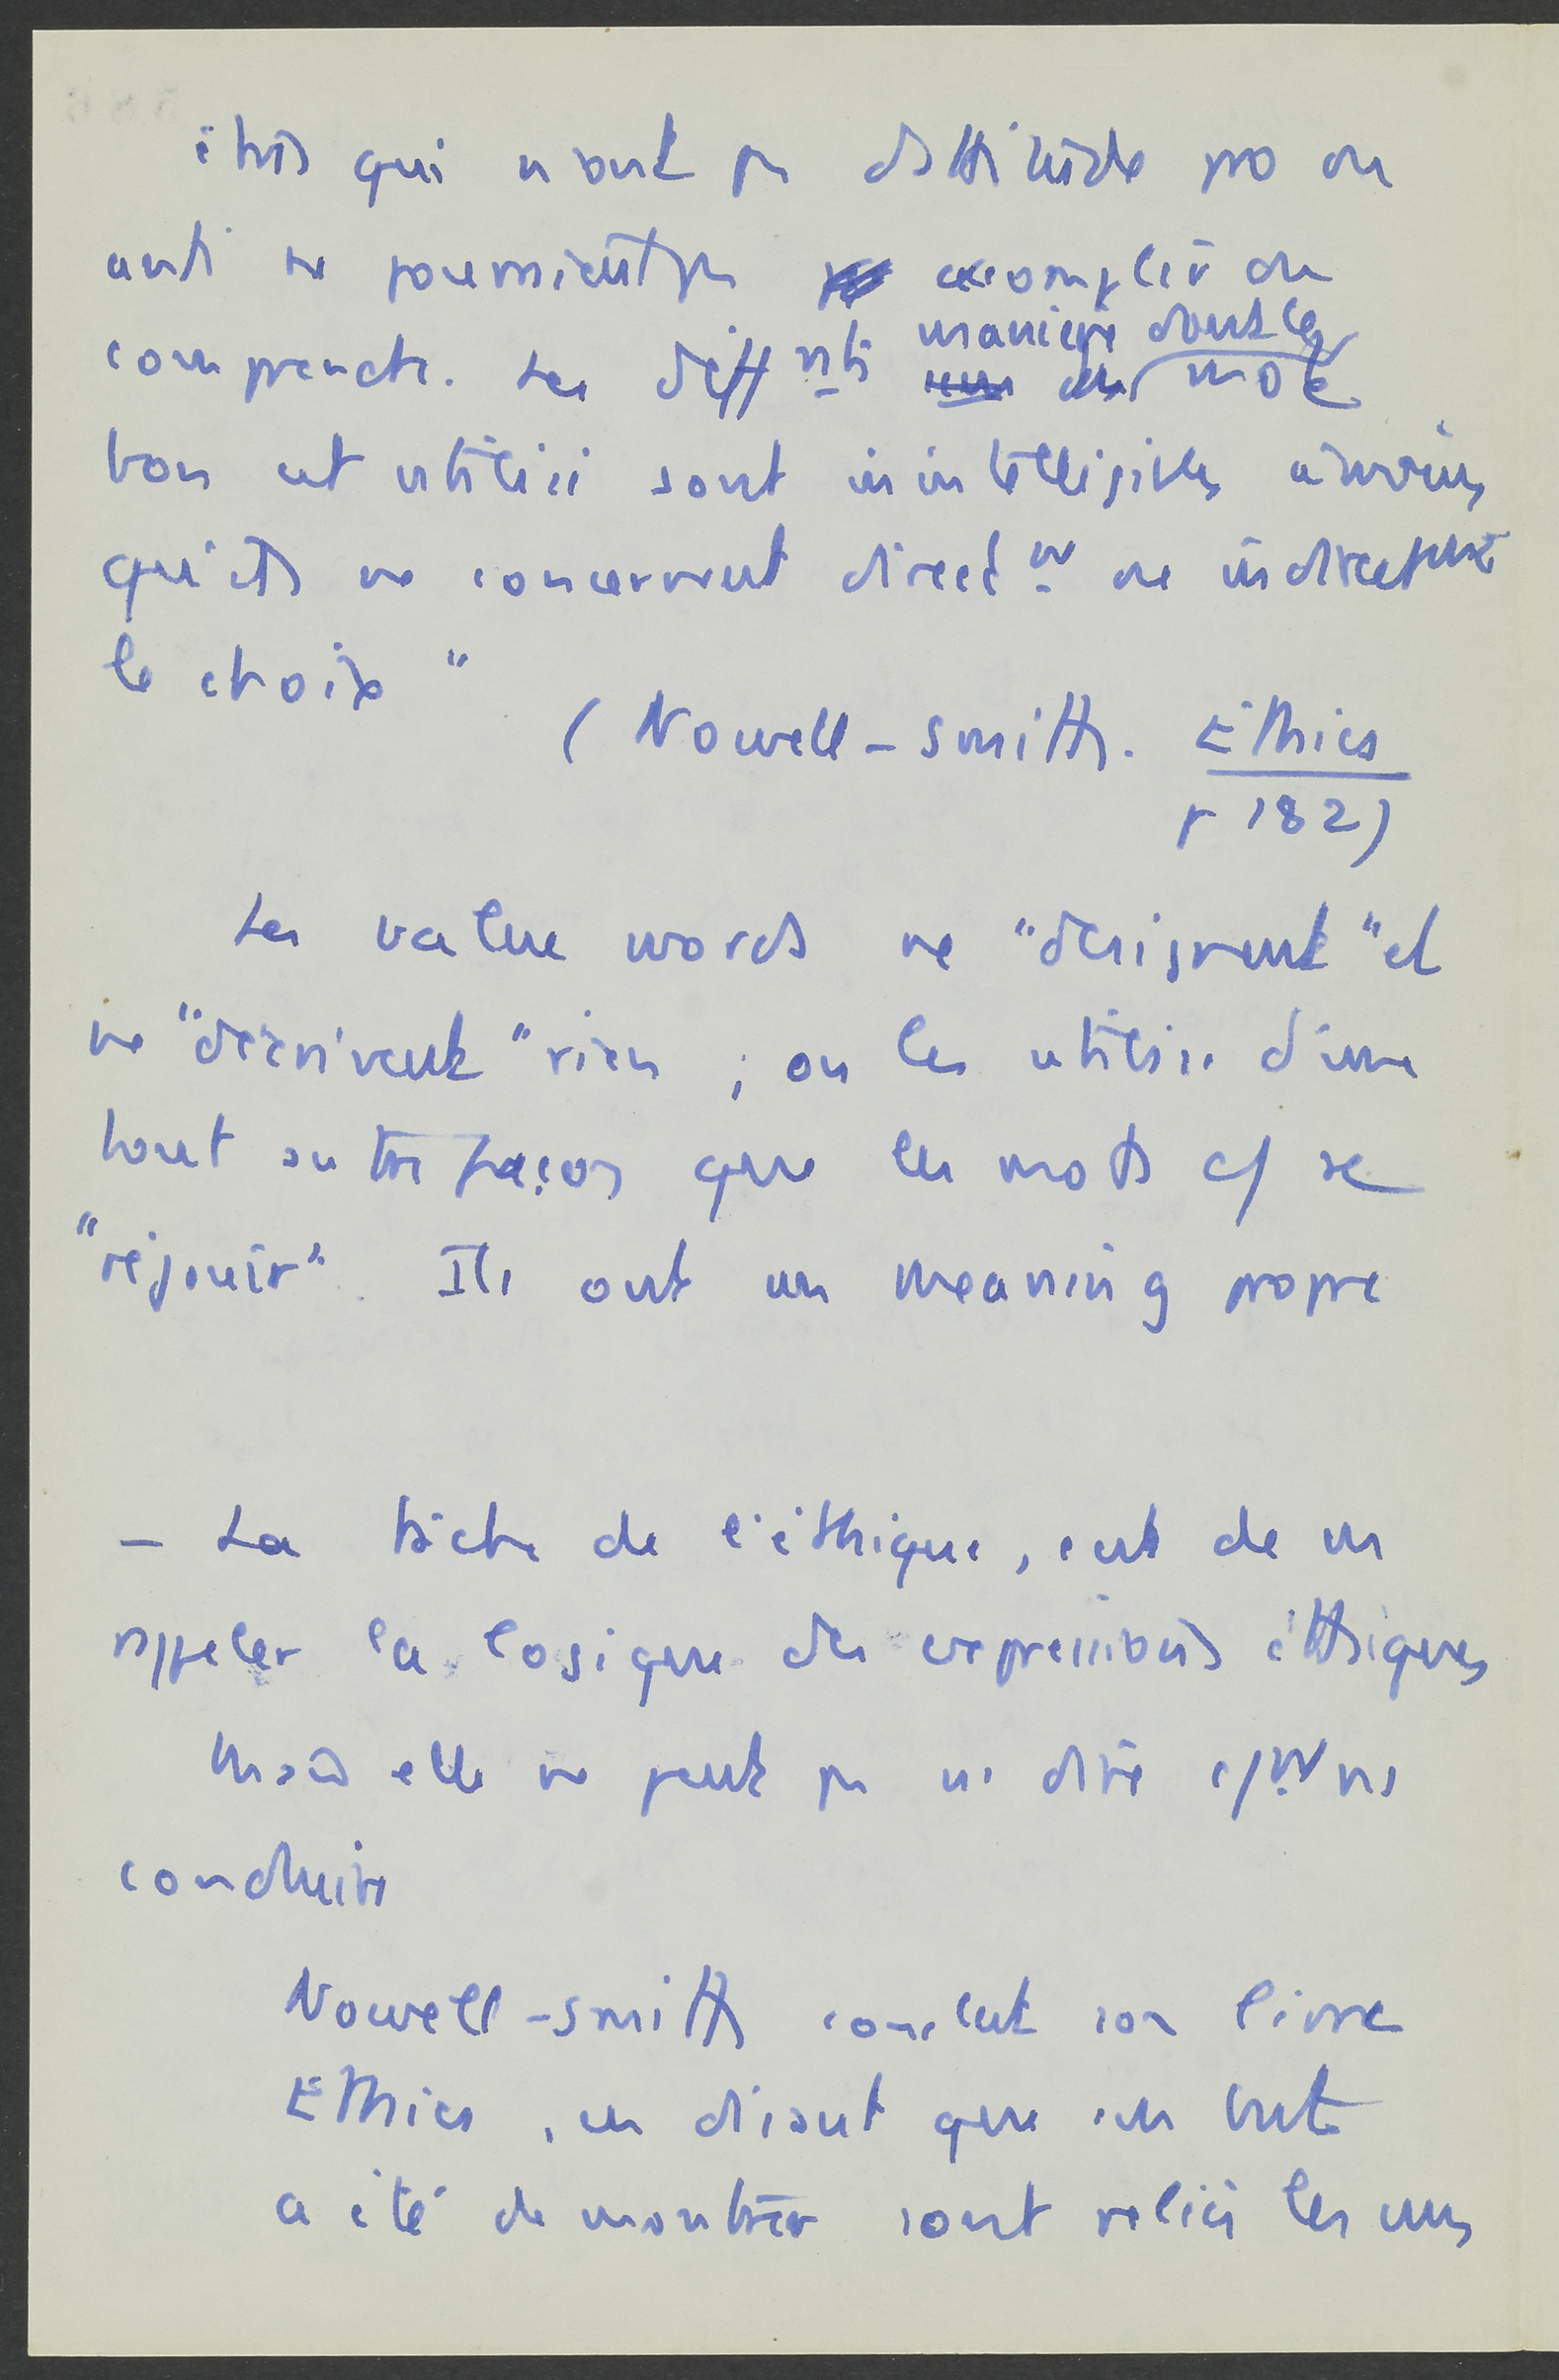 êtres qui n'ont pas d'attitude pro ou
anti ne pourraient pas accomplir ou
comprendre. Les diffnts manières dont le mot
bon est utilisé sont inintelligibles à moins
qu'ils ne concernent directnt ou indirectement
le choix"
(Nowell-Smith. Ethics
p 182)
Les value words ne "désignent" et
ne "décrivent" rien ; on les utilise d'une
tout autre façon que les mots c/ se
"réjouir". Ils ont un meaning propre
- La tâche de l'éthique, c'est de ns
rappeler la logique des expressions éthiques
Mais elle ne peut pas ns dire c/nt ns
conduire
Nowell-Smith conclut son livre
Ethics, en disant que son but
a été de montrer sont reliés les uns